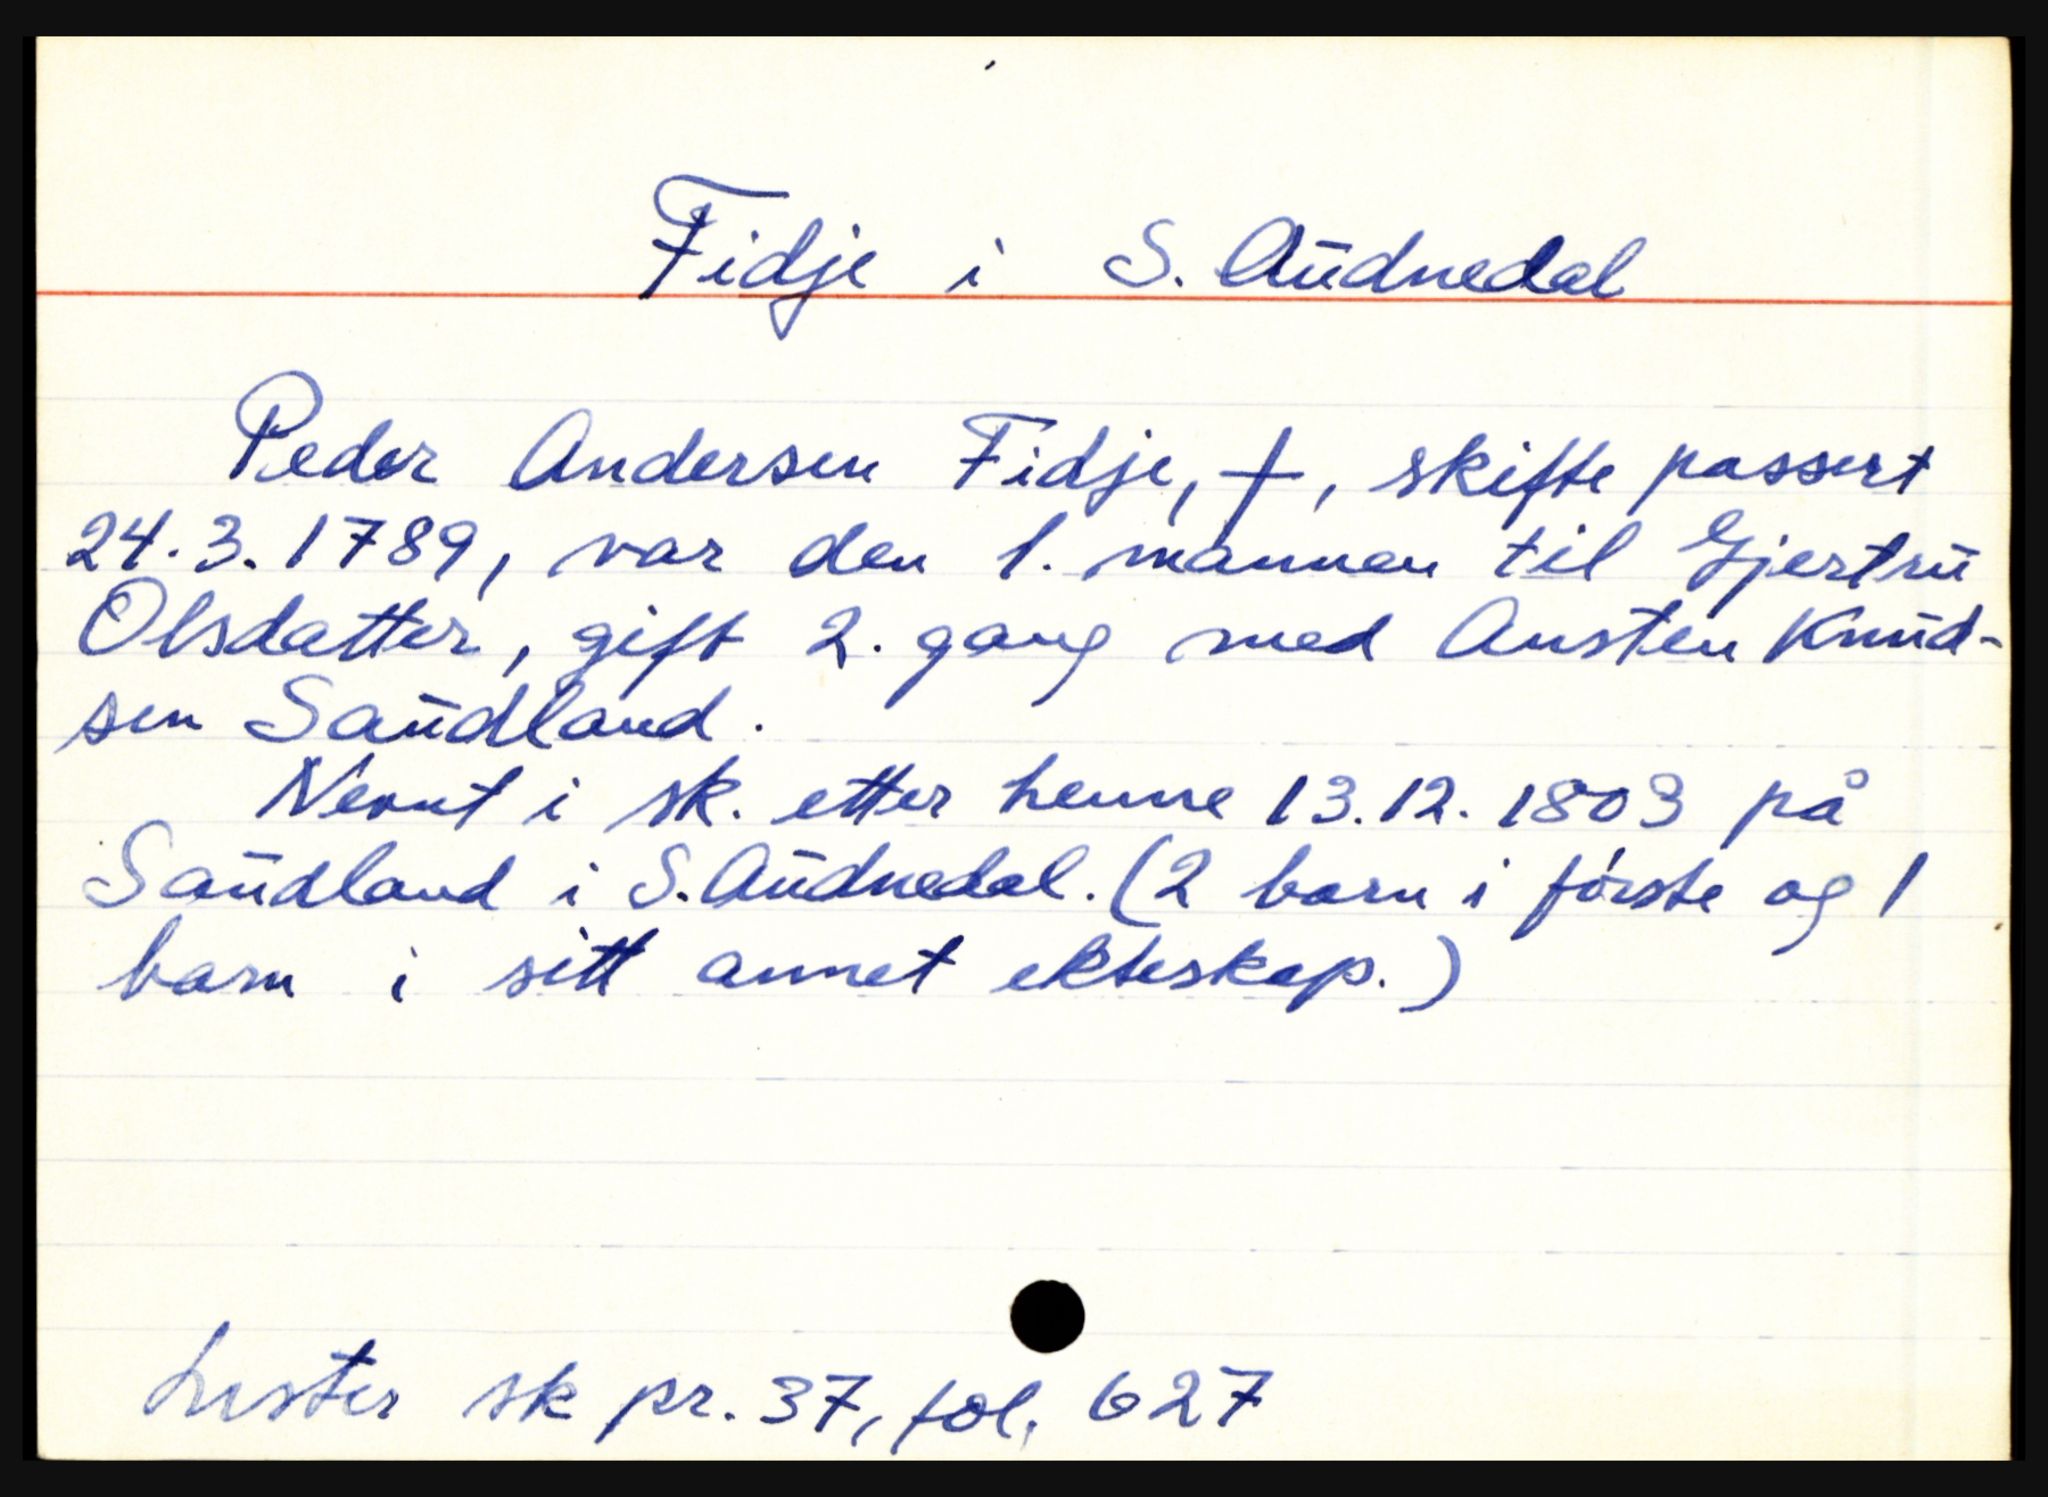 Fidje i S. Audnedal
Peder Andersen Fidje, †, skifte passert
24.3.1789, var den 1. mannen til Gjertru
Olsdatter, gift 2. gang med Austen Knud-
sen Saudland.
Nevnt i sk. etter henne 13.12.1803 på
Saudland i S. Audnedal. (2 barn i første og 1
barn i sitt annet ekteskap.)
Lister sk pr. 37, fol. 627